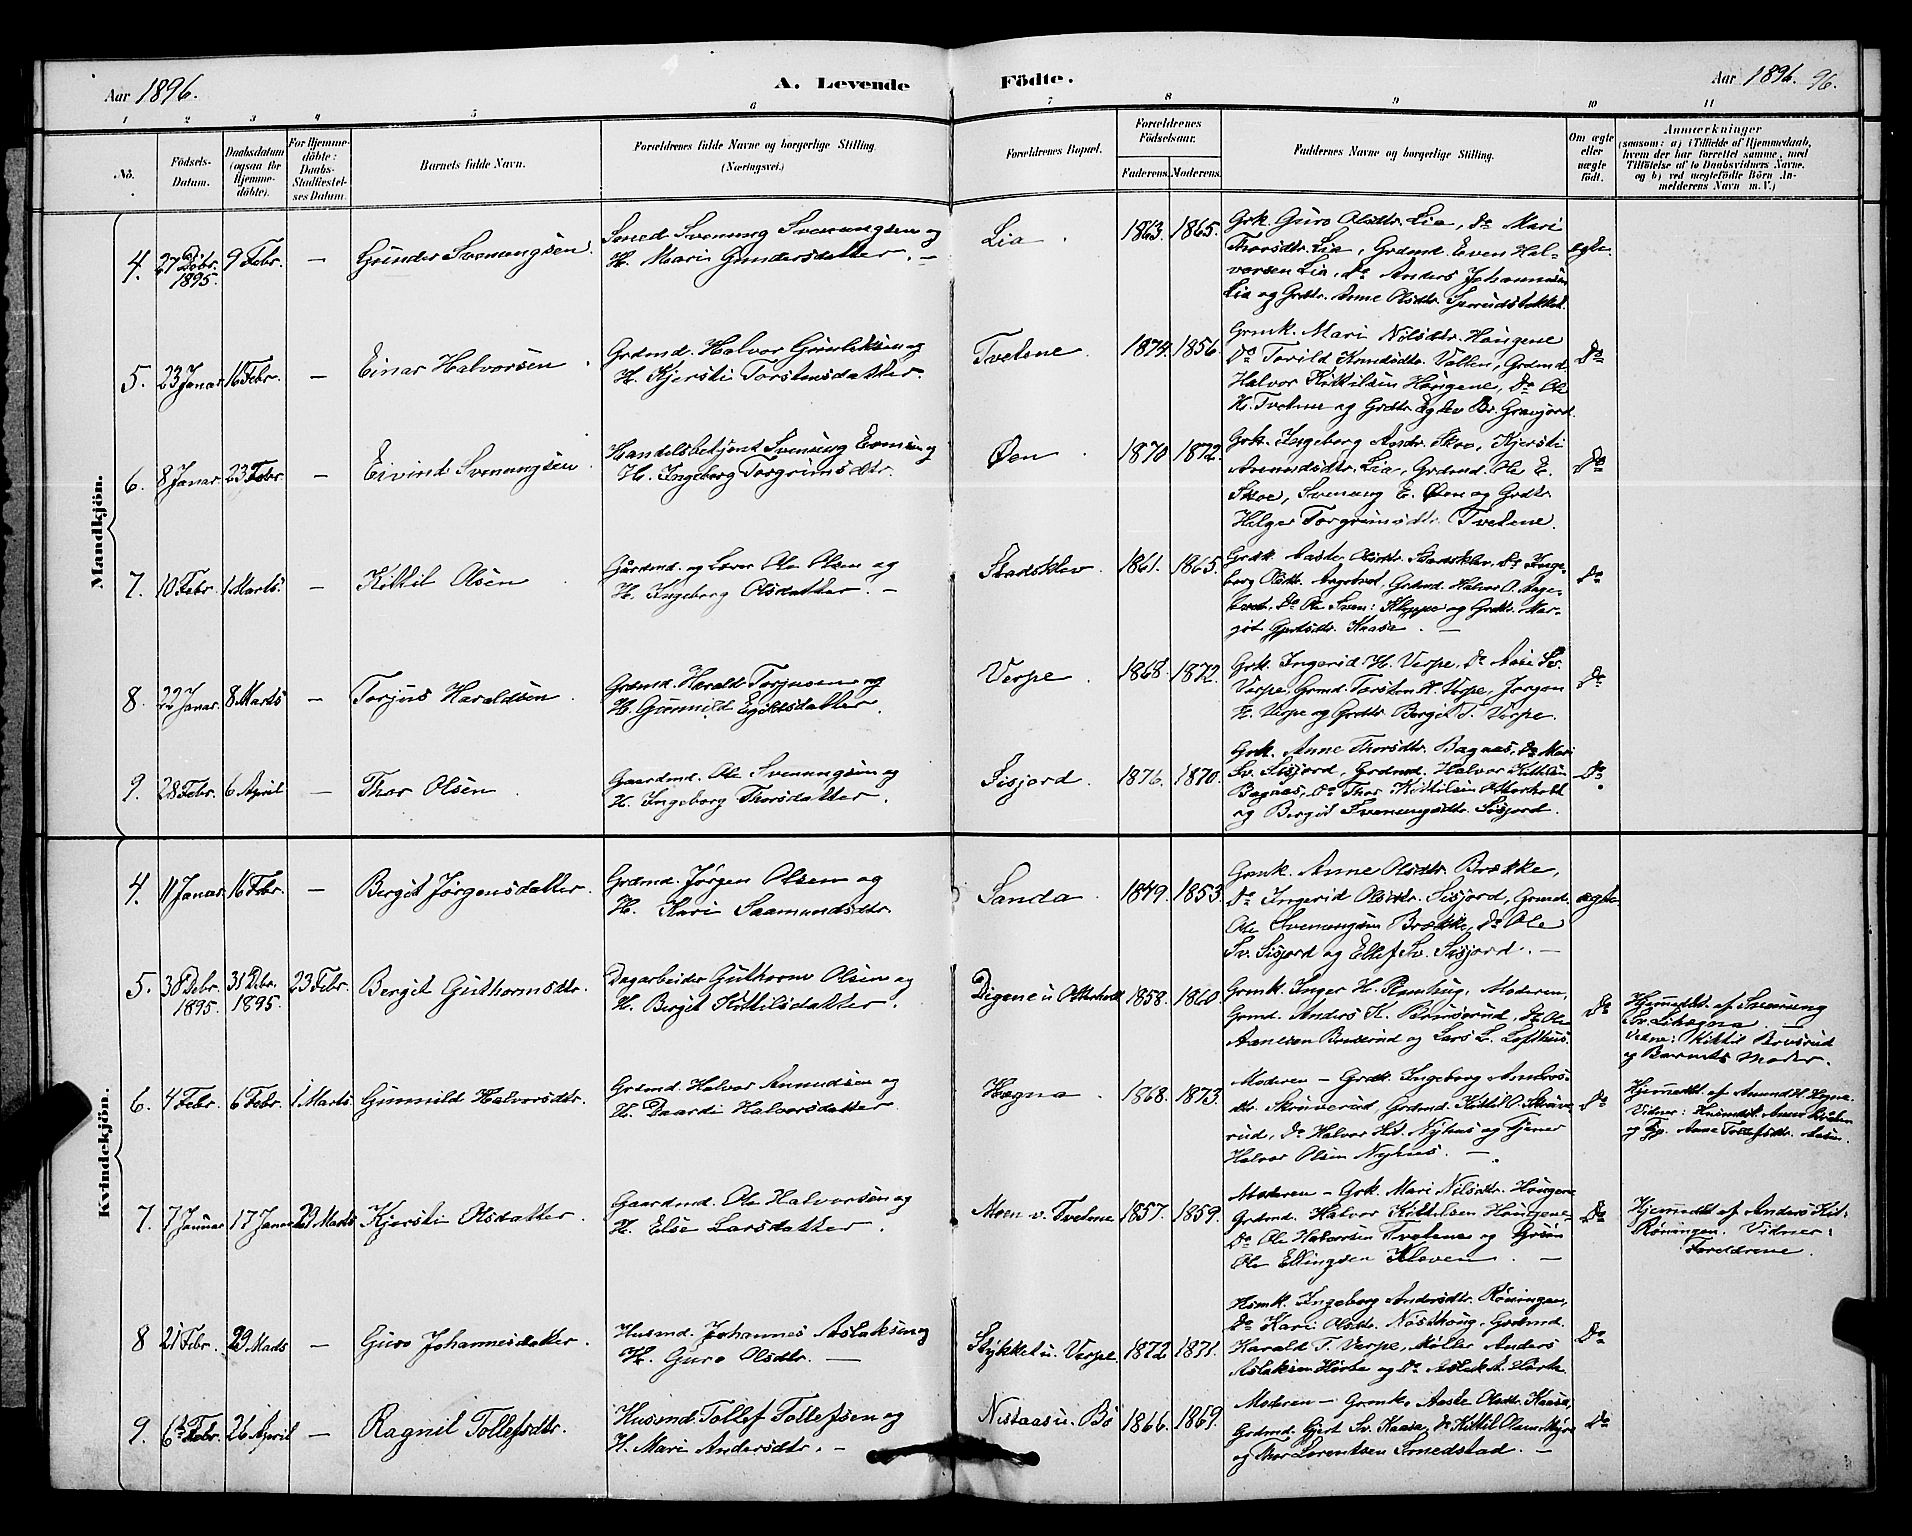 Aar 1896.
A. Levende Födte.
Aar 1896. 96.
1 2 3 4 5 6 7 8 9 10 11
No.
Födsels-Datum.
Daabsdatum (ogsaa for Hjemmedöbte).
For Hjemmedöbte: Daabs-Stadfæstelses Datum.
Barnets fulde Navn.
Forældrenes fulde Navne og borgerlige Stilling. (Næringsvei.)
Forældrenes Bopæl.
Forældrenes Födselsaar.
Faderens. Moderens.
Faddernes Navne og borgerlige Stilling.
Om ægte eller uægte födt.
Anmærkninger
(saasom: a) i Tilfælde af Hjemmedaab,
hvem der har forrettet samme, med
Tilföielse af to Daabsvidners Navne,
og b) ved uægtefödte Börn An-
melderens Navn m. V.)
Mandkjön.
4. 27 Debr. 1895. 9 Febr. — Gunder Svenungsen.
Smed Svenung Svenungsen og
H. Mari Gundersdatter. —
Lia. 1863. 1865.
Grk. Guro Olsdtr. Lia, Do Mari
Thorsdtr. Lia, Grdmd. Even Hal-
vorsen Lia, Do Anders Johannesen
Lia og Grdtr. Anne Olsdtr.
egte.
5. 23 Januar 16 Febr. — Einar Halvorsen.
Grdmd. Halvor Gunleksen og
H. Kjersti Torstensdatter.
Tvetene. 1874. 1856.
Grmk. Mari Nilsdtr. Haugene
Do Torild Knudsdtr. Valen, Grdmd.
Halvor Kittilsen Haugene, Do Ole
H. Tvetene og Grdtr.
Do
6. 8 Januar 23 Febr. — Eivind Svenungsen.
Handelsbetjent Svenung Evensen og
H. Ingeborg Torgrimsdtr.
Øen. 1870 1872.
Grk. Ingeborg Andr. Skoe, Kjersti
Lia, Grdmd. Ole E.
Skoe, Svenung E. Øen og Grdtr.
Helge Torgrimsdtr. Tvetene.
Do
7. 10 Febr. 1 Marts. — Kittil Olsen.
Gårdmd. og Ole Olsen og
H. Ingeborg Olsdatter. —
Stadsklev. 1861. 1865.
Grdk. Aaste Olsdtr. Stadsklev, Do Inge-
borg Olsdtr. Grdmd. Halvor O.
Do Ole Sven: Kleppe og Grdtr. Mar-
git Gjertsdtr. Kaasa. —
Do
8. 22 Januar. 8 Marts — Torjus Haraldsen.
Grdmd. Harald Torjusen og
H. Gunnild Egilsdatter.
Verpe. 1868. 1872.
Grk. Ingerid H. Verpe, Do Aase Sv.
Verpe, Grmd. Torsten H. Verpe, Jørgen
H. Verpe og Grdtr. Bergit T. Verpe.
Do
9. 28 Febr. 6 April — Thor Olsen.
Gaardmd. Ole Svenungsen og
H. Ingeborg Thorsdatter.
Sisjord. 1876. 1870.
Grk. Anne Thorsdtr. Bagaas, Do Mari
Sv. Sisjord, Grdmd. Halvor Kittilsen
Bagaas, Do Thor Kittilsen Otterholt
og Bergit Svenungsdtr. Sisjord.
Do.
Kvindekjön.
4. 11 Januar 16 Febr. — Bergit Jørgensdatter.
Grdmd. Jørgen Olsen og
H. Kari Saamundsdtr.
Sanda. 1849. 1853.
Grmk. Anne Olsdtr. Brække,
Do Ingerid Olsdtr. Sisjord, Grmd.
Ole Svenungsen Brække, Do Ole
Sv. Sisjord og Ellef Sv. Sisjord. —
ægte.
5. 30 Debr. 1895. 31 Debr. 1895. 23 Febr. Bergit Guthormsdtr.
Dagarbeider Guthorm Olsen og
H. Bergit Kittilsdatter.
Digene u Otterholt 1858. 1860.
Grmk. Inger H. Moderen,
Grmd. Anders K. Do Ole
og Lars L. Lofthus.
Do
Hjemmedbt. af Svenung
Sv. Lihagna —
Vidner: Kittil
og Barnets Moder.
6. 4 Febr. 6 Febr. 1 Marts Gunnild Halvorsdtr.
Grdmd. Halvor Amundsen og
H. Daardi Halvorsdatter.
Hagna. 1868. 1873.
Moderen — Grdk. Ingeborg
dtr. Skruverud, Grdmd. Kittil O. Skruve-
rud, Do Halvor Kit. Nyhus og Tjener
Halvor Olsen Nyhus. —
Do
Hjemmedbt. af Amund H. Hagna.
Vidner:
og Anne Tollefsdtr. Aasen.
7. 7 Januar 17 Januar 29 Marts Kjersti Olsdatter.
Gaardmd. Ole Halvorsen og
H. Else Larsdatter.
Moen v. Tvetene 1857. 1859.
Moderen — Grk. Mari Nilsdtr. Haugene
Grdmd. Halvor Kittilsen Haugene
Do Ole Halvorsen Tvetene og
Ole Ellingsen Kleven —
Do
Hjemmedbt af Anders Kit.
Røningen. Vidner:
Foreldrene.
8 21 Febr. 29 Marts — Guro Johannesdatter.
Husmd. Johannes Aslaksen og
H. Guro Olsdtr. —
Stykket u. Verpe. 1872 1871.
Hsmk. Ingeborg Andersdtr. Röningen,
Do Kari Olsdtr. Nasthaug, Grdmd.
Harald T. Verpe, Møller Anders
Aslaksen Hørte og Do Aslak A. Hørte.
Do
9. 6te Febr. 26 April — Ragnil Tollefsdtr.
Husmd. Tollef Tollefsen og
H. Mari Andersdtr. —
Nistaas u. Bö 1866. 1869.
Moderen — Grmk. Aaste Olsdtr. Kaasa,
Grdmd. Gjert Sv. Kaasa, Do Kittil Olsen
og Thor Lorentsen Smedstad. —
Do